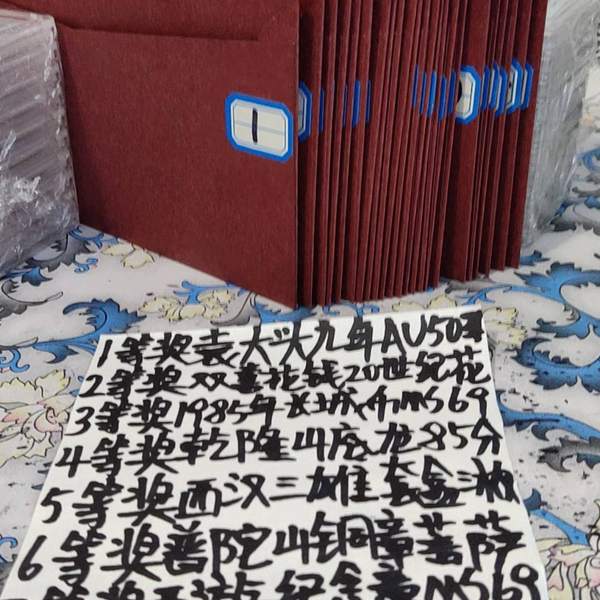 1
1等奖袁大头九年AU50
2等奖双喜花钱20世纪花
3等奖1985年长城币MS69
4等奖乾隆山底龙85分
5等奖西汉三雄套盒
6等奖普陀山铜章菩萨
等奖西游纪念章MS69